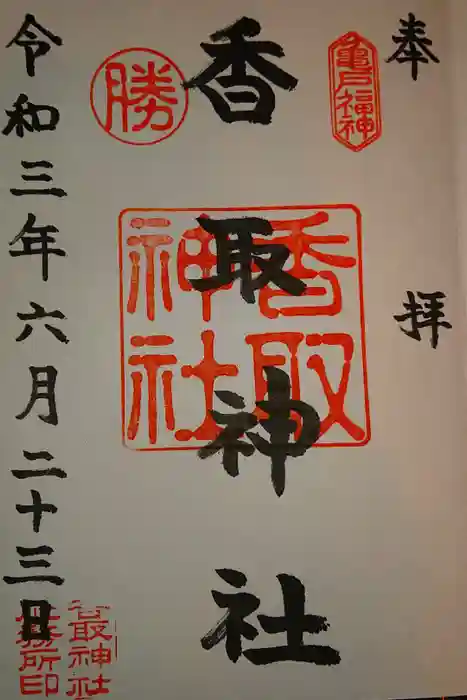 奉拝
亀戸福神
香取神社
香取神社
勝
令和三年六月二十三日
香取神社
社務所印